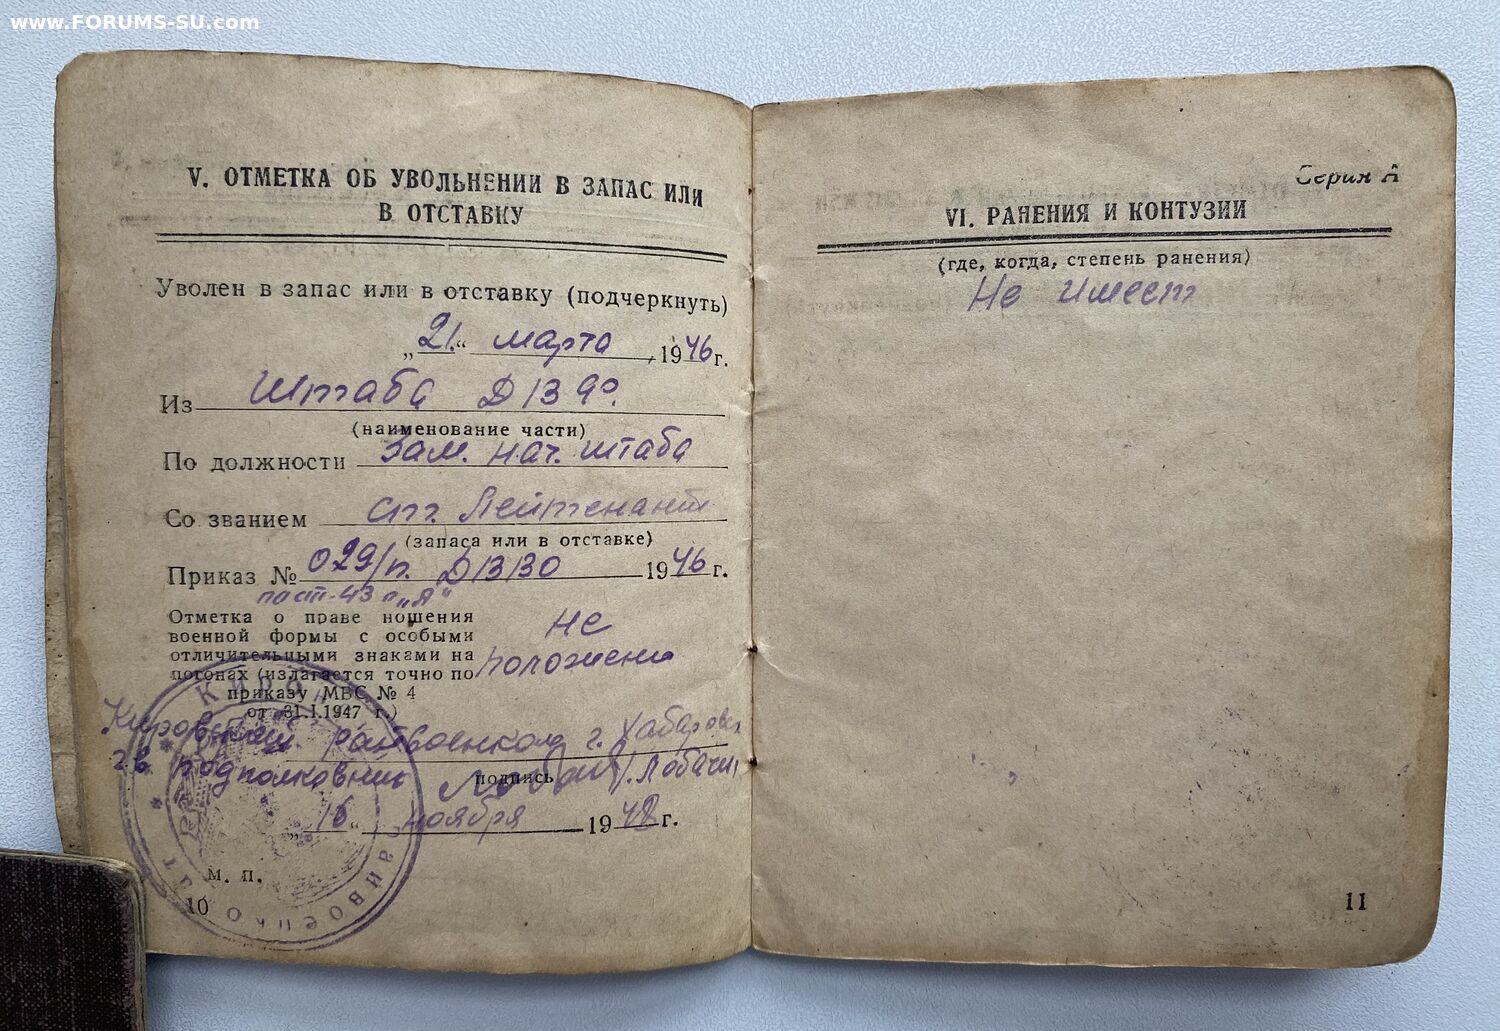 www.FORUMS-SU.com
V. ОТМЕТКА ОБ УВОЛЬНЕНИИ В ЗАПАС ИЛИ
В ОТСТАВКУ
Уволен в запас или в отставку (подчеркнуть)
„21." марта, 1946 г.
Из Штаба
(наименование части)
По должности Зам. нач. штаба
Со званием ст. Лейтенант
(запаса или в отставке)
Приказ № 029/п. 1946 г.
Отметка о праве ношения
военной формы с особыми
отличительными знаками на
погонах (излагается точно по
приказу МВС № 4
от 31.I.1947 г.)
не
положени
Кировский райвоенком г. Хабаровск
подполковник
подпись
„16" ноября 1948 г.
М. П.
10
Серия А
VI. РАНЕНИЯ И КОНТУЗИИ
(где, когда, степень ранения)
Не имеет
11